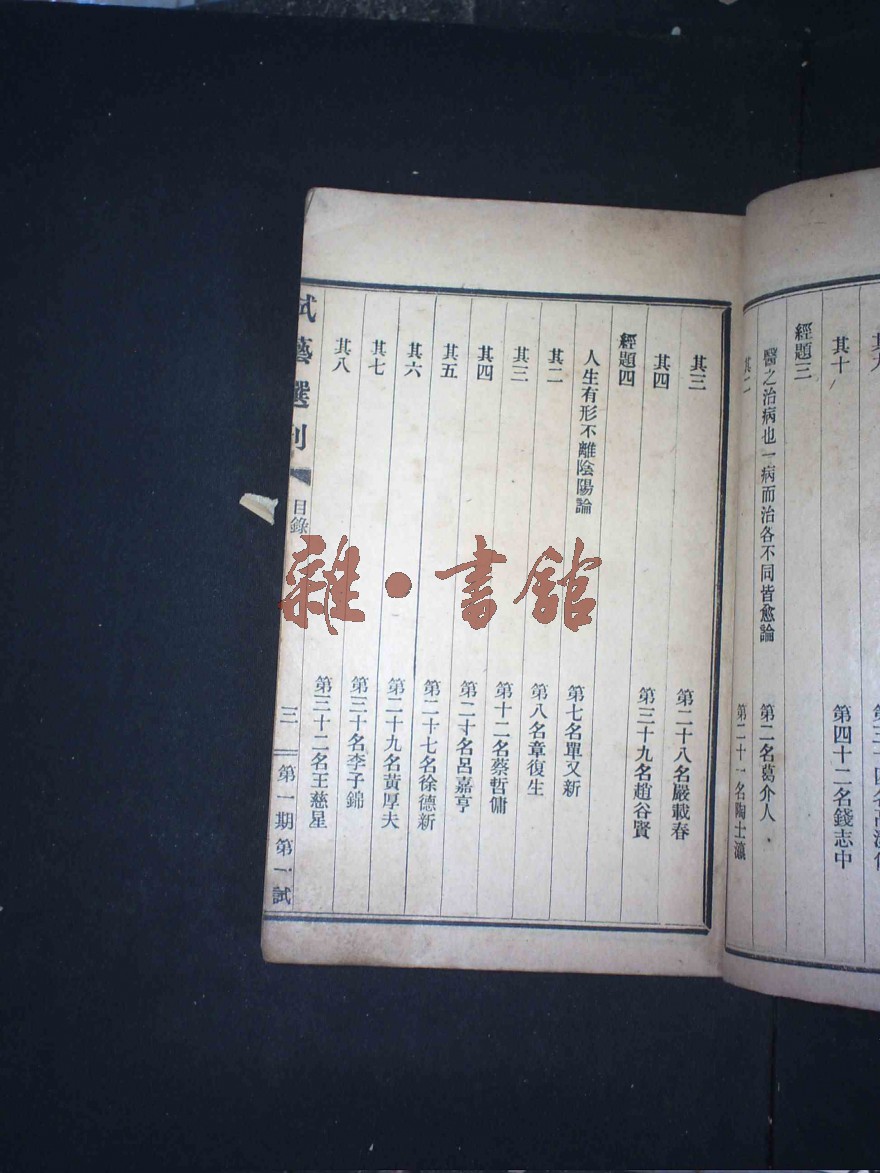 其十 第四十二名錢志中
經題三
醫之治病也一病而治各不同皆愈論 第二名葛介人
其二 第二十一名陶士瀛
其三 第二十八名嚴載春
其四 第三十九名趙谷賢
經題四
人生有形不離陰陽論 第七名單又新
其二 第八名章復生
其三 第十二名蔡哲傭
其四 第二十名呂嘉亨
其五 第二十七名徐德新
其六 第二十九名黃厚夫
其七 第三十名李子錦
其八 第三十二名王慈星
試藝選刊 目錄 三 第一期第一試
雜·書館